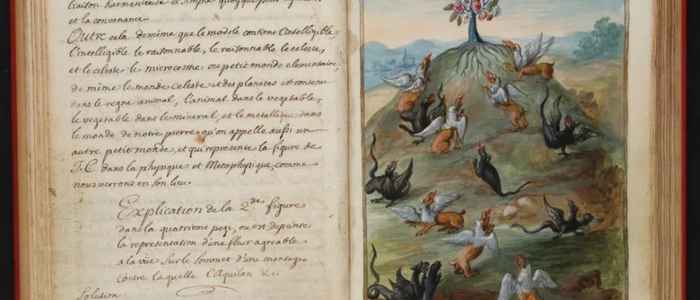 liaison harmonieuse et simpa
et la convenance.
Outre cela de mime que le modele contient l'intelligible,
l'intelligible le raisonnable, le raisonnable le celeste,
et le celeste le microcosme ou petit monde elementaire,
de mime le monde celeste et des planetes est contenu
dans le regne animal, l'animal dans le vegetable,
le vegetable dans le mineral, et le metallique dans
le monde de notre pierre qu'on appelle aussi un
autre petit monde, et qui represente la figure de
J. C. dans la phisique et Metaphysique, comme
nous verrons en son lieu.
Explication de la 2de figure
dans la quatrieme page, ou est depeinte
la representation d'une fleur agreable
a la vüe sur le sommet d'une montagne
contre laquelle l'Aquilon &c.
Solution